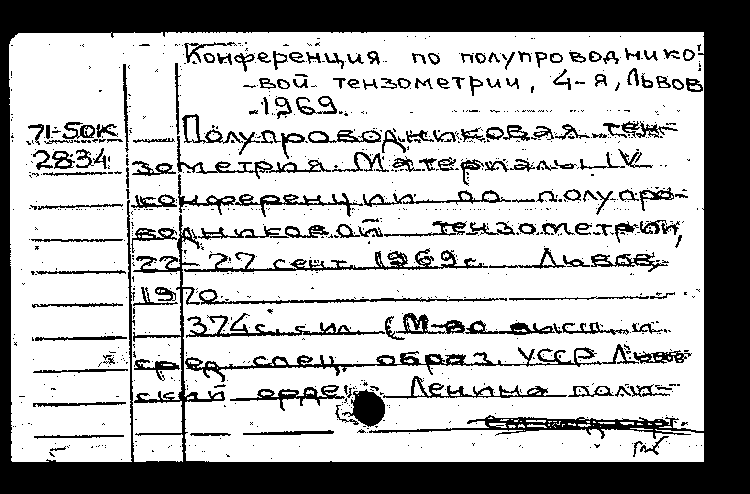 Конференция по полупроводнико-
-вой тензометрии, 4-я, Львов
-1969.
71-50К Полупроводниковая тен-
2834 зометрия. Материалы IV
конференции по полупро-
водниковой тензометрии,
22-27 сент. 1969г. Львов,
1970.
374с. с ил. (М-во высш. и
сред. спец. образ. УССР Львов-
ский орден Ленина поли-
см. след. карт.